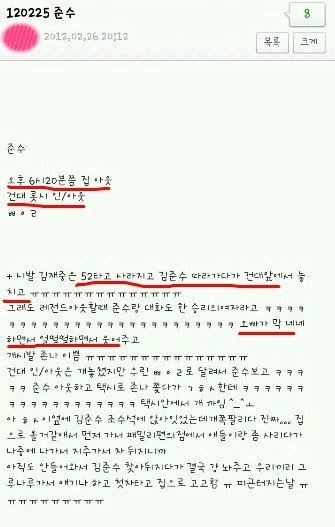 120225 준수
8
2012.02.26 20:12
목록
크게
준수
오후 6시20분쯤 집 아웃
건대 롯시 인/아웃
ㅃㅇㄹ
+ 시발 김재중은 52타고 사라지고 김준수 따라가다가 건대앞에서 놓
치고 ㅠㅠㅠㅠㅠㅠㅠㅠㅠㅠㅠㅠㅠㅠㅠ
그래도 레전드아웃할때 준수랑 대화도 한 승리의여자라고 ㅋㅋㅋㅋ
ㅋㅋㅋㅋㅋㅋㅋㅋㅋㅋㅋㅋㅋㅋㅋㅋㅋㅋ 오빠가 막 네네
하면서 엉떨떨하면서 웃어주고
개시발 존나 이쁨 ㅠㅠㅠㅠㅠㅠㅠㅠㅠㅠㅠㅠㅠㅠㅠ
건대 인/아웃은 개놓쳤지만 우린 ㅃㅇㄹ로 달려서 준수보고 ㅋㅋㅋ
ㅋㅋ 준수 아웃하고 택시로 존나 쫓다가 ㄱㅎㅅ한테 ㅋㅋㅋㅋㅋㅋㅋ
ㅋㅋㅋㅋㅋㅋㅋㅋㅋㅋㅋㅋ 택시안에서 개 까임 ^_^ㅗ
아 ㅎㅅ이옆에 김준수 조수석에 앉아있었는데개쪽팔리다 진짜,,, 집
으로 올거같애서 먼저 가서 패밀리편의점에서 애들이랑 좀 사리다가
나중에 나가서 지주가서 차 뒤지니까
아직도 안들어와서 김준수 찾아뒤지다가 결국 걍 놔주고 우리끼리 그
루나루가서 얘기나 하고 첫차타고 집으로 고고황 ㅠ 피곤터지는날 ㅠ
ㅠㅠㅠㅠㅠㅠㅠㅠㅠ